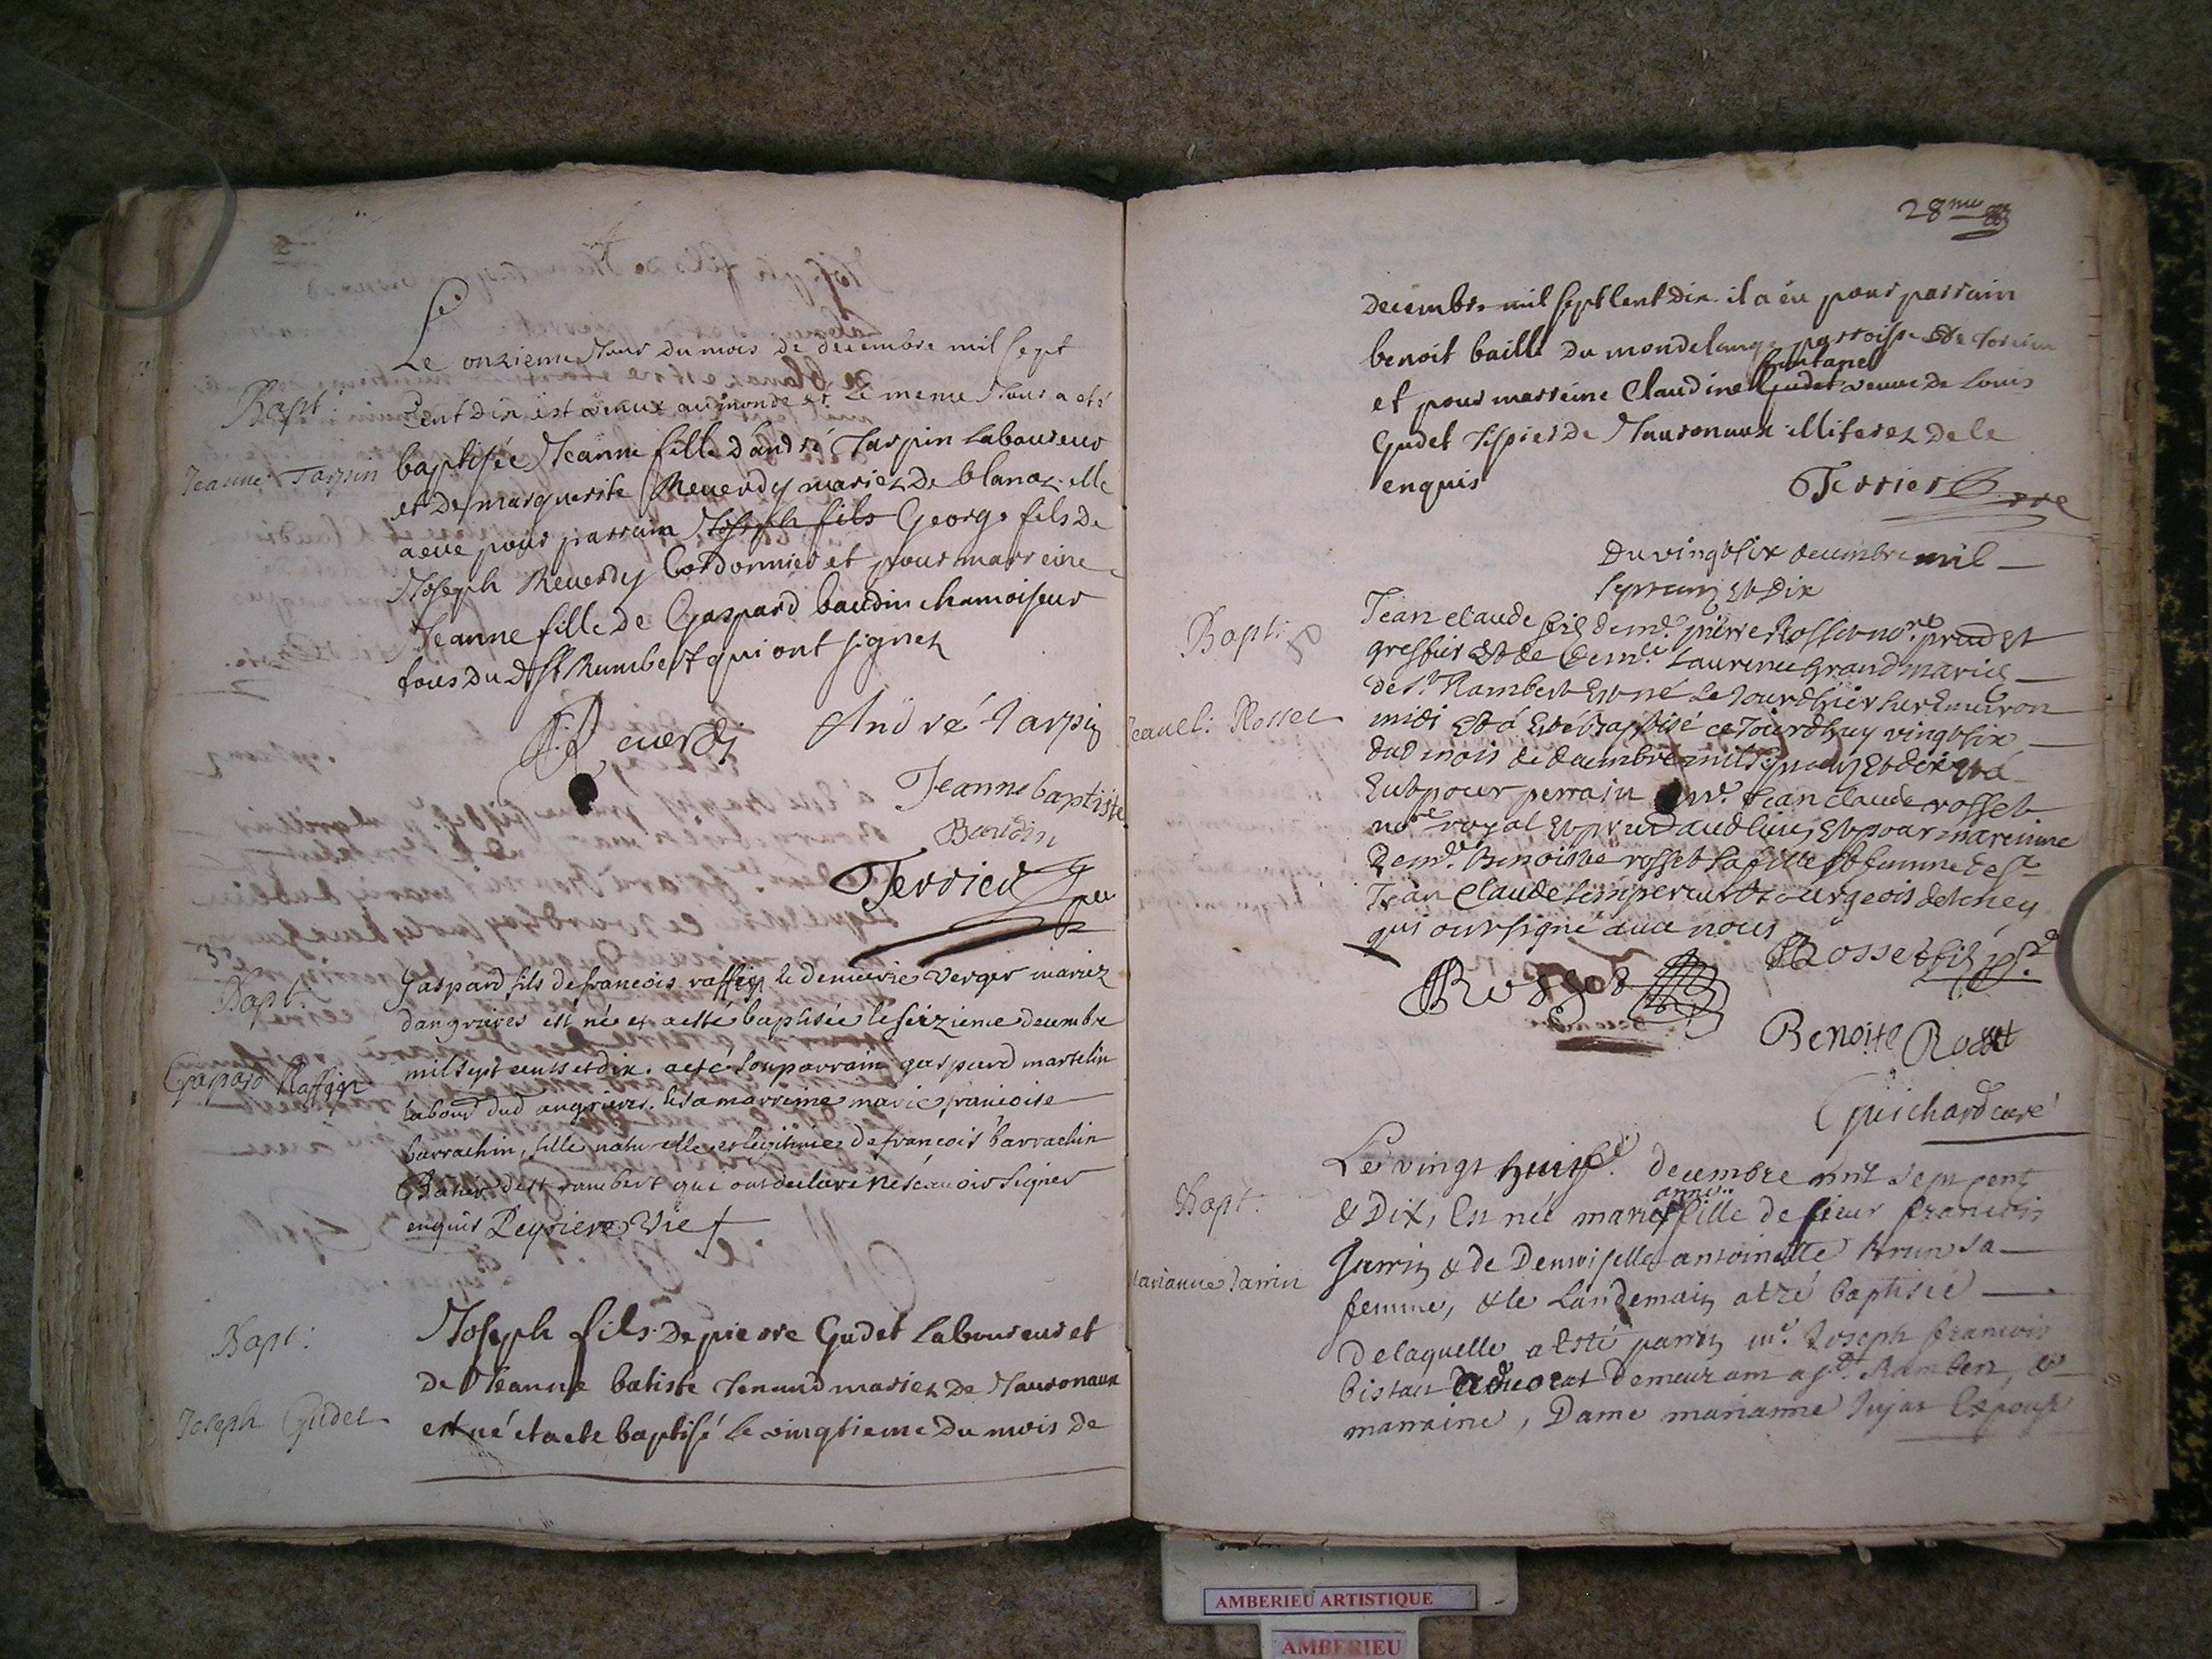 Le onzieme Jour du mois de decembre mil sept
Bapt:
Cent dix est venue au monde et le meme Jour a eté
Jeanne Tarpin
baptisée Jeanne fille d'andré Tarpin Laboureur
et de marguerite Reuerdy mariez de blanaz elle
a eue pour parrain Joseph fils George fils de
Joseph Reuerdy Cordonnier et pour marreine
Jeanne fille de Gaspard baudin chamoiseur
tous du d. St Rambert qui ont signez
Reuerdi
André Tarpin
Jeanne baptiste
Baudin
Terrier
Bapt.
Gaspard fils de francois raffin & de marie verger mariez
dangrieres est né et a esté baptisée le seizieme decembre
Gaspard Raffin
mil sept cents et dix. a eté son parrain gaspard martelin
labour dud angrieres. & sa marreine marie francoise
barrachin, fille naturelle et legitime de francois barrachin
de st rambert qui ont declaré ne scauoir signer
enquis Peysiere vic
Bapt:
Joseph fils de pierre Gudet Laboureur et
de Jeanne batiste Tenand mariez de Jauronaux
Joseph Gudet
est né et a ete baptisé le vingtieme du mois de
28me
decembre mil sept Cent dix. il a eu pour parrain
benoit baille du mondelange parroisse de torcieu
fontanel
et pour marreine Claudine Gudet veuue de Louis
Gudet Tissier de Jauronaux illiterez de le
enquis
Terrier
Du vingt six decembre mil
sept cens et Dix
Bapti
Jean claude fils de mr. pierre Rosset nore. et
greffier et de demlle Laurence Grand mariés
de St Rambert est né le Jourdhier sur enuiron
Jeancl: Rosset
midi et a esté baptisé ce Jourdhuy vingt six
dud mois de decembre mil sept cens et dix et a
eut pour perrain mr. Jean claude rosset
nore royal et aud lieu, et pour mareinne
demlle. Benoiste rosset sa fille et femme de sr
Jean Claude Lempereur bourgeois de
qui ont signé auec nous
Rosset
Rosset fils
Benoite Roset
Guichard curé
Le vingt huit decembre mil sept cent
Bapt.
anne
& Dix, est née marie fille de sieur francois
Jarrin & de Demoiselle antoinette Brun sa
Marianne Jarrin
femme, & le Landemain a eté baptisée
de laquelle a esté parrin mr. Joseph francois
bistact aduocat demeurant a St. Rambert, &
marraine, Dame marianne Jujat Espouse
AMBERIEU ARTISTIQUE
AMBERIEU